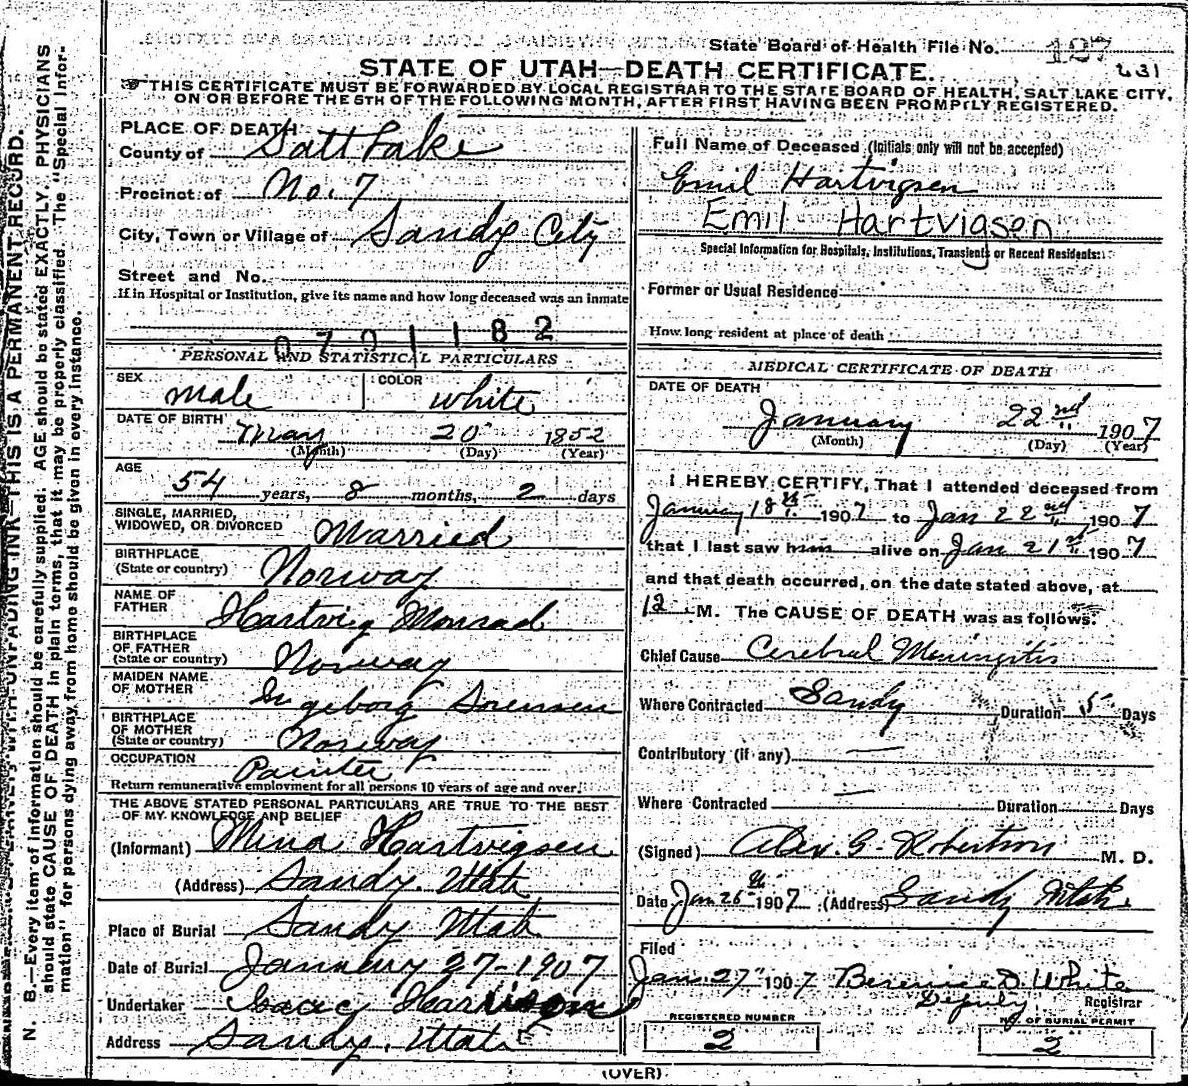 State Board of Health File No. 127
231
STATE OF UTAH—DEATH CERTIFICATE.
THIS CERTIFICATE MUST BE FORWARDED BY LOCAL REGISTRAR TO THE STATE BOARD OF HEALTH, SALT LAKE CITY,
ON OR BEFORE THE 5TH OF THE FOLLOWING MONTH, AFTER FIRST HAVING BEEN PROMPTLY REGISTERED.
N. B.—Every item of information should be carefully supplied. AGE should be stated EXACTLY. PHYSICIANS
should state CAUSE OF DEATH in plain terms, that it may be properly classified. The "Special Infor-
mation" for persons dying away from home should be given in every instance.
WITH UNFADING INK—THIS IS A PERMANENT RECORD.
PLACE OF DEATH
County of Salt Lake
Precinct of No. 7
City, Town or Village of Sandy City
Street and No.
If in Hospital or Institution, give its name and how long deceased was an inmate
0701182
PERSONAL AND STATISTICAL PARTICULARS
SEX male COLOR white
DATE OF BIRTH May 20 1852
(Month) (Day) (Year)
AGE 54 years, 8 months, 2 days
SINGLE, MARRIED,
WIDOWED, OR DIVORCED Married
BIRTHPLACE
(State or country) Norway
NAME OF
FATHER Hartvig Monsad
BIRTHPLACE
OF FATHER
(State or country) Norway
MAIDEN NAME
OF MOTHER Ingeborg Sorensen
BIRTHPLACE
OF MOTHER
(State or country) Norway
OCCUPATION Painter
Return remunerative employment for all persons 10 years of age and over.
THE ABOVE STATED PERSONAL PARTICULARS ARE TRUE TO THE BEST
OF MY KNOWLEDGE AND BELIEF
(Informant) Mina Hartvigsen
(Address) Sandy. Utah
Place of Burial Sandy Utah
Date of Burial January 27-1907
Undertaker Harrison
Address Sandy. Utah
Full Name of Deceased (Initials only will not be accepted)
Emil Hartvigsen
Emil Hartvigsen
Special Information for Hospitals, Institutions, Transients or Recent Residents:
Former or Usual Residence
How long resident at place of death
MEDICAL CERTIFICATE OF DEATH
DATE OF DEATH
January 22nd 1907
(Month) (Day) (Year)
I HEREBY CERTIFY, That I attended deceased from
January 18th 1907 to Jan 22nd, 1907
that I last saw him alive on Jan 21st 1907
and that death occurred, on the date stated above, at
12 M. The CAUSE OF DEATH was as follows:
Chief Cause Cerebral Meningitis
Where Contracted Sandy Duration 5 Days
Contributory (if any) —
Where Contracted — Duration Days
(Signed) Alex. G. Robertson M. D.
Date Jan 26th 1907 (Address) Sandy Utah.
Filed
Jan. 27th 1907 Berenice D. White
Deputy Registrar
REGISTERED NUMBER
2
NO. OF BURIAL PERMIT
2
(OVER)